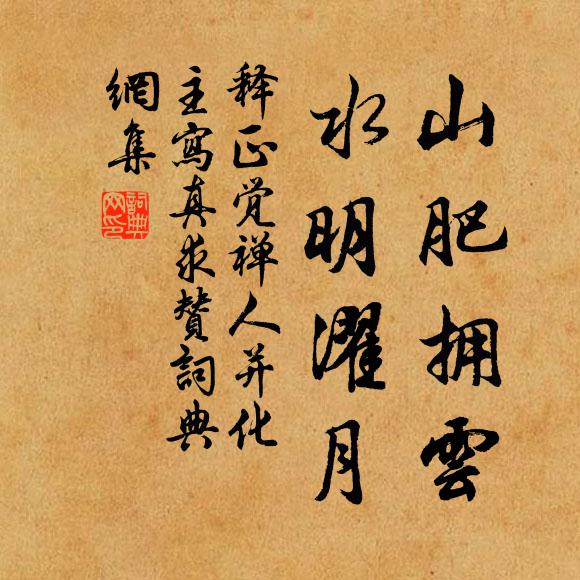 山肥拥雲
水明濯月
释正觉禅人并化
主寫真求赞詞典
網集
詞典網印